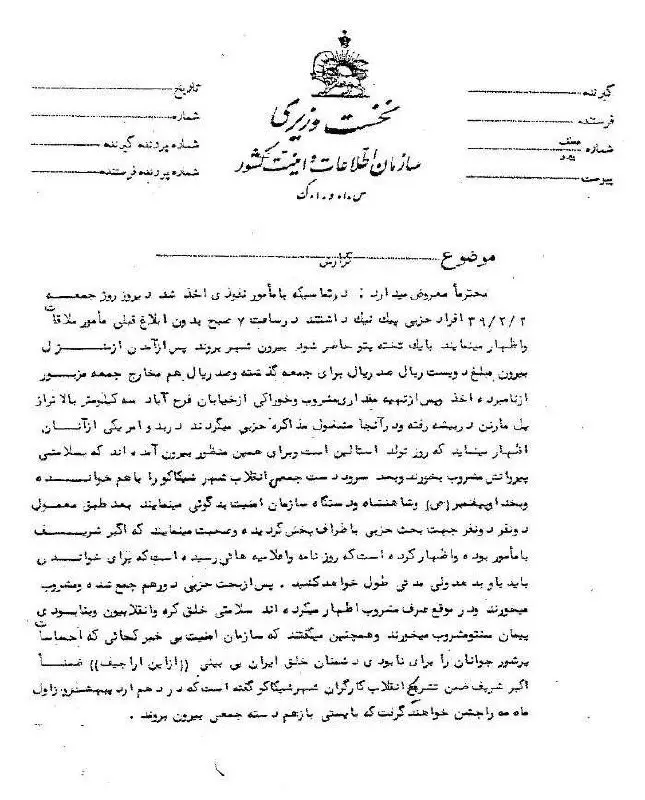 نخست وزیری
سازمان اطلاعات و امنیت کشور
س.ا.و.ا.ک
گیرنده
فرستنده
شماره
پیوست
تاریخ
شماره
شماره پرونده گیرنده
شماره پرونده فرستنده
موضوع گزارش
محترماً معروض میدارد : در تماسیکه با مأمور نفوذی اخذ شد دیروز روز جمعه
۳۹/۲/۲ افراد حزبی پیک نیک داشتند در ساعت ۷ صبح بدون ابلاغ قبلی مأمور ملاقات
و اظهار مینمایند با یک تخته پتو حاضر شود بیرون شهر بروند پس از آمدن از منزل
بیرون مبلغ دویست ریال صد ریال برای جمعه گذشته و صد ریال هم مخارج جمعه مزبور
از نامبرده اخذ و پس از تهیه مقداری مشروب و خوراکی از خیابان فرح آباد سه کیلومتر بالاتر از
پل مارنن در بیشه رفته و در آنجا مشغول مذاکره حزبی میگردند در بدو امر یکی از آنان
اظهار مینماید که روز تولد استالین است و برای همین منظور بیرون آمده اند که بسلامتی
پیروانش مشروب بخورند و بعد سرود دست جمعی انقلاب شهر شیکاکو را با هم خوانده
و بخدا و پیغمبر (ص) و شاهنشاه و دستگاه سازمان امنیت بدگوئی مینمایند بعد طبق معمول
دو نفر دو نفر جهت بحث حزبی باطراف پخش گردیده و صحبت مینمایند که اکبر شریف
با مأمور بوده و اظهار کرده است که روزنامه و اعلامیه هائی رسیده است که برای خواندن
باید یاو بدهد ولی مدتی طول خواهد کشید . پس از بحث حزبی دور هم جمع شده و مشروب
میخورند و در موقع صرف مشروب اظهار میکرده اند سلامتی خلق کره و انقلابیون و بنابودی
پیمان سنتو مشروب میخورند و همچنین میگفتند که سازمان امنیت بی خبر کجائی که احساسات
پرشور جوانان را برای نابودی دشمنان خلق ایران بی بینی ((از این اراجیف)) ضمناً
اکبر شریف ضمن تشریح انقلاب کارگران شهر شیکاکو گفته است که در دهم اردیبهشت روز اول
ماه مه را جشن خواهند گرفت که بایستی باز هم دسته جمعی بیرون بروند .